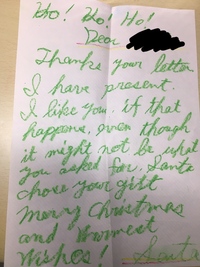 Ho! Ho! Ho!
Dear
Thanks your letter
I have present.
I like you. if that
happens, even though
it might not be what
you asked for, Santa
chose your gift
Merry Christmas
and Warmest
Wishes!
Santa